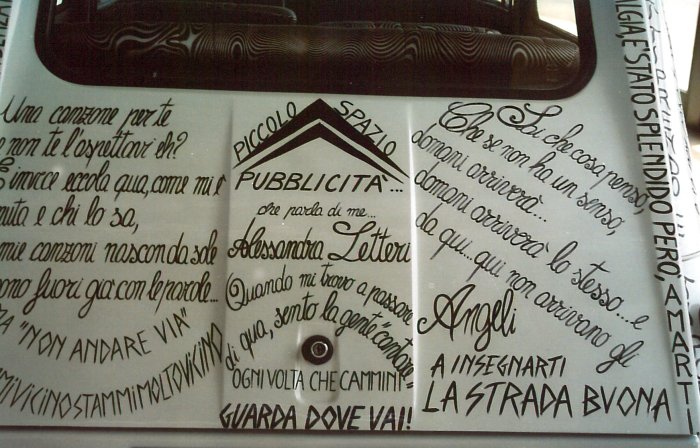 Una canzone per te
non te l'aspettavi eh?
E invece eccola qua, come mi è
e chi lo sa,
mie canzoni nascon da sole
fuori già con le parole...
"NON ANDARE VIA"
VICINO STAMMI MOLTO VICINO
PICCOLO SPAZIO
PUBBLICITÀ...
che parla di me...
Alessandra Letteri
Quando mi trovo a passare
di qua, sento la gente "cantare"
OGNI VOLTA CHE CAMMINI
GUARDA DOVE VAI!
Sai che cosa penso,
Che se non ha un senso,
domani arriverà...
domani arriverà lo stesso... e
da qui... qui non arrivano gli
Angeli
A INSEGNARTI
LA STRADA BUONA
È STATO SPLENDIDO PERÒ, AMART